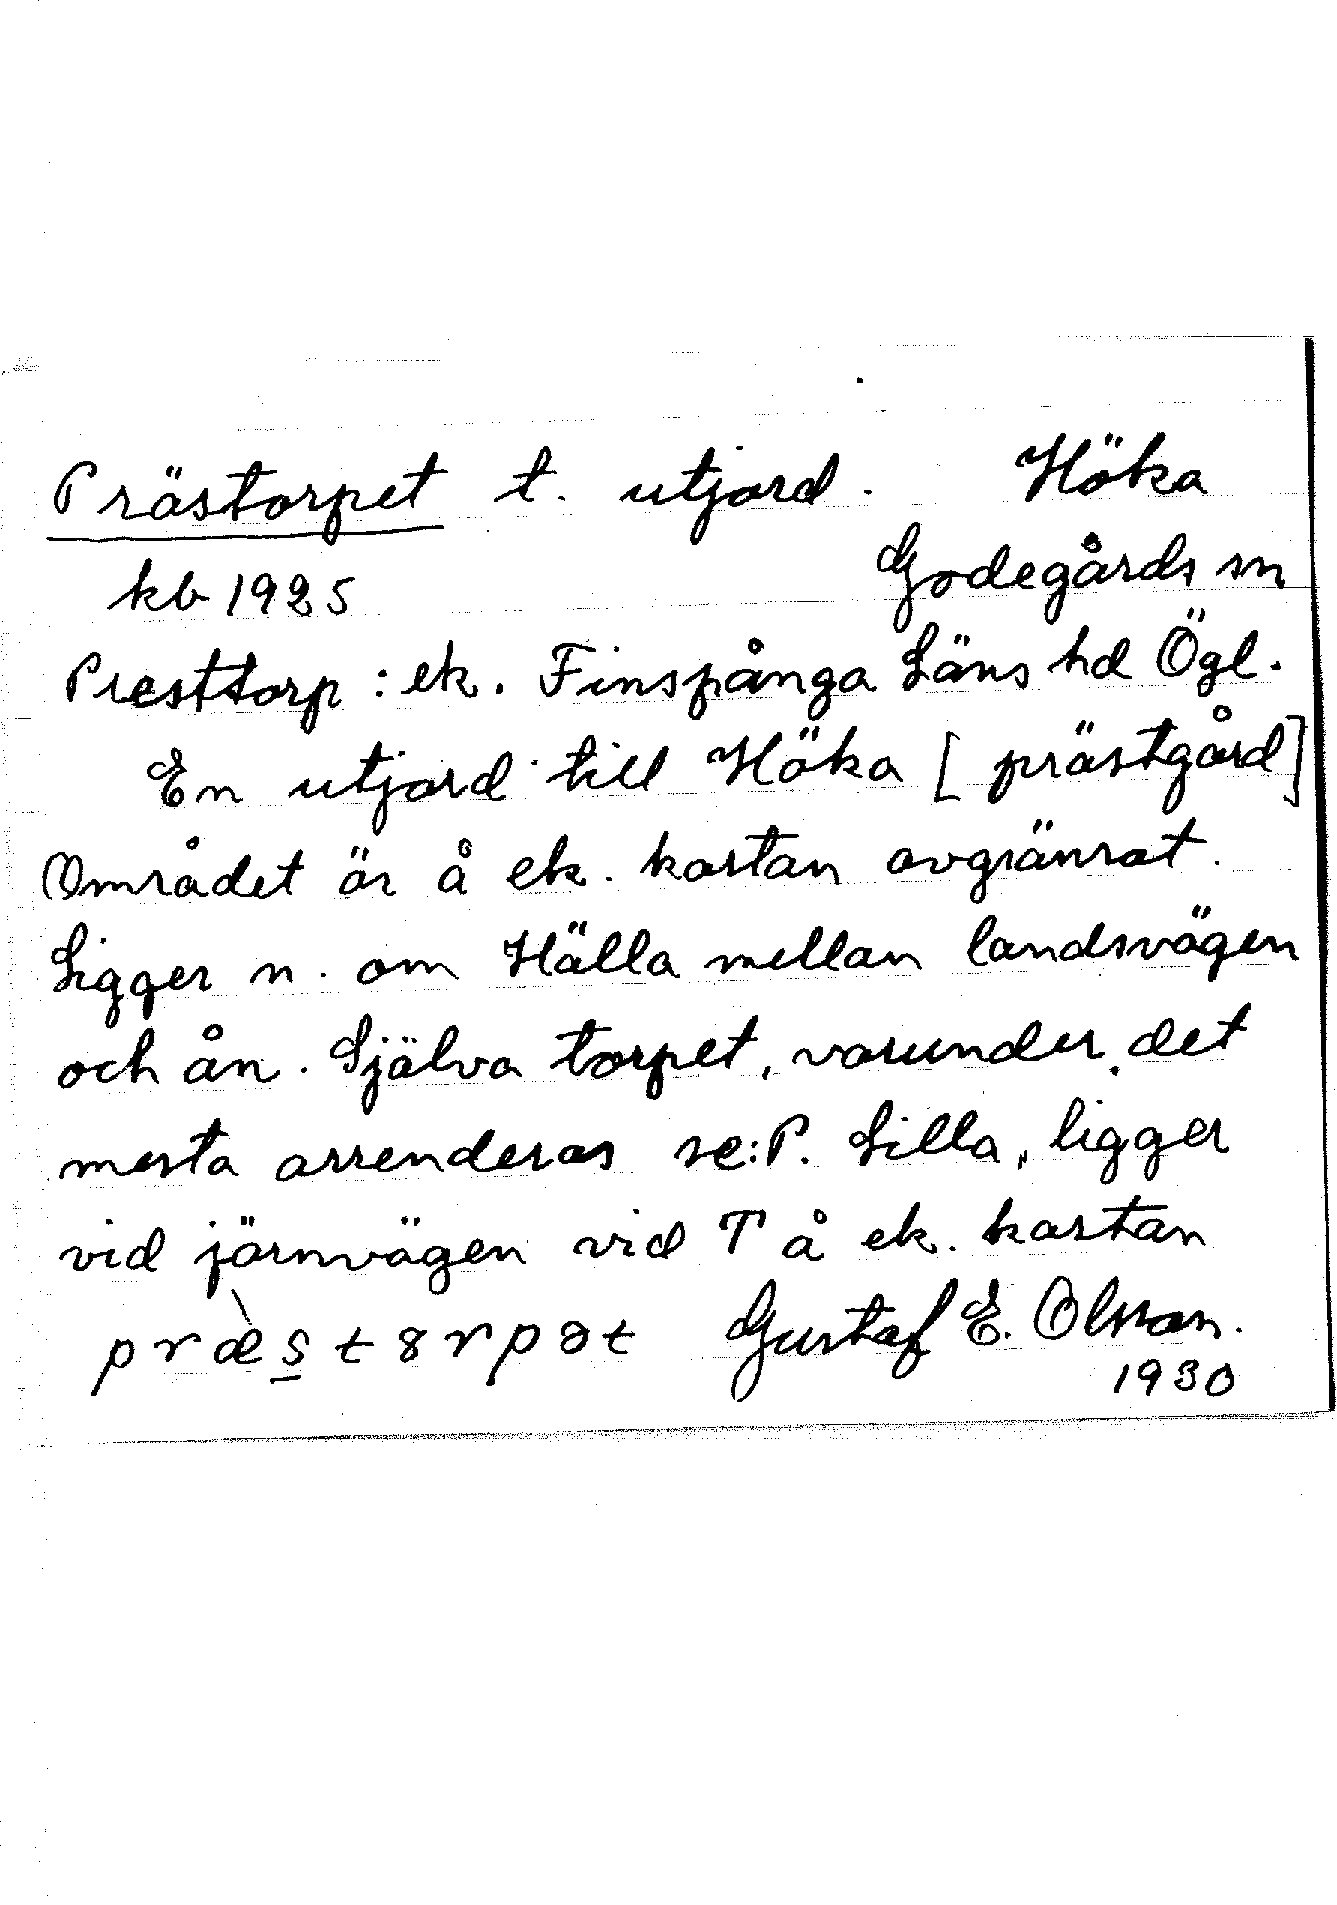 Prästorpet t. utjord. Höka
kb 1925 Godegårds sn
Presttorp: ek. Finspånga Läns hd Ögl.
En utjord till Höka [prästgård]
Området är å ek. kartan avgränsat.
Ligger n. om Hälla mellan landsvägen
och ån. Själva torpet, varunder det
mesta arrenderas se: P. Lilla, ligger
vid järnvägen vid T å ek. kartan
præ̀s̲tȣrpət Gustaf E. Olsson.
1930